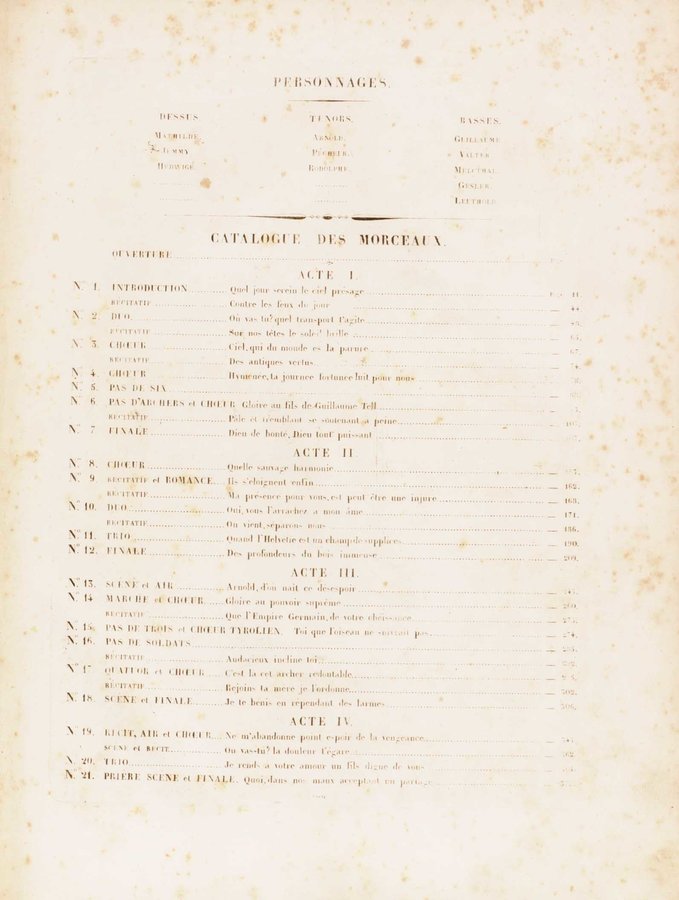 PERSONNAGES.
DESSUS
MATHILDE.
JEMMY
HEDWIGE
TENORS.
ARNOLD.
PÊCHEUR.
RODOLPHE
BASSES.
GUILLAUME
VALTER
MELCTHAL
GESLER.
LEUTHOLD
CATALOGUE DES MORCEAUX.
OUVERTURE
ACTE I.
N° 1. INTRODUCTION Quel jour serein le ciel présage 11.
RECITATIF Contre les feux du jour 44
N° 2. DUO Où vas tu? quel transport t'agite
RECITATIF Sur nos têtes le soleil brille 65.
N° 3. CHŒUR Ciel, qui du monde es la parure 67.
RECITATIF Des antiques vertus
N° 4. CHŒUR Hymenée, ta journée fortunée luit pour nous
N° 5. PAS DE SIX
N° 6 PAS D'ARCHERS et CHŒUR Gloire au fils de Guillaume Tell
RECITATIF Pâle et tremblant se soutenant a peine
N° 7 FINALE Dieu de bonté, Dieu tout puissant
ACTE II.
N° 8. CHŒUR Quelle sauvage harmonie
N° 9 RECITATIF et ROMANCE Ils s'éloignent enfin 162.
RECITATIF Ma présence pour vous, est peut être une injure 168.
N° 10. DUO Oui, vous l'arrachez a mon âme 171.
RECITATIF On vient, séparons nous 186.
N° 11. TRIO Quand l'Helvétie est un champ de supplices 190.
N° 12. FINALE Des profondeurs du bois immense 209.
ACTE III.
N° 13. SCÈNE et AIR Arnold, d'où nait ce desespoir
N° 14 MARCHE et CHŒUR Gloire au pouvoir suprême 260.
RECITATIF Que l'Empire Germain, de votre obeissance
N° 15. PAS DE TROIS et CHŒUR TYROLIEN. Toi que l'oiseau ne suivrait pas
N° 16. PAS DE SOLDATS
RECITATIF Audacieux incline toi
N° 17 QUATUOR et CHŒUR C'est la cet archer redoutable
RECITATIF Rejoins ta mère je l'ordonne 302.
N° 18 SCÈNE et FINALE Je te benis en répendant des larmes 306.
ACTE IV.
N° 19. RECIT, AIR et CHŒUR Ne m'abandonne point espoir de la vengeance
SCÈNE et RECIT. Où vas-tu? la douleur t'égare 362
N° 20. TRIO Je rends a votre amour un fils digne de vous
N° 21. PRIERE SCENE et FINALE. Quoi, dans nos maux acceptant un partage